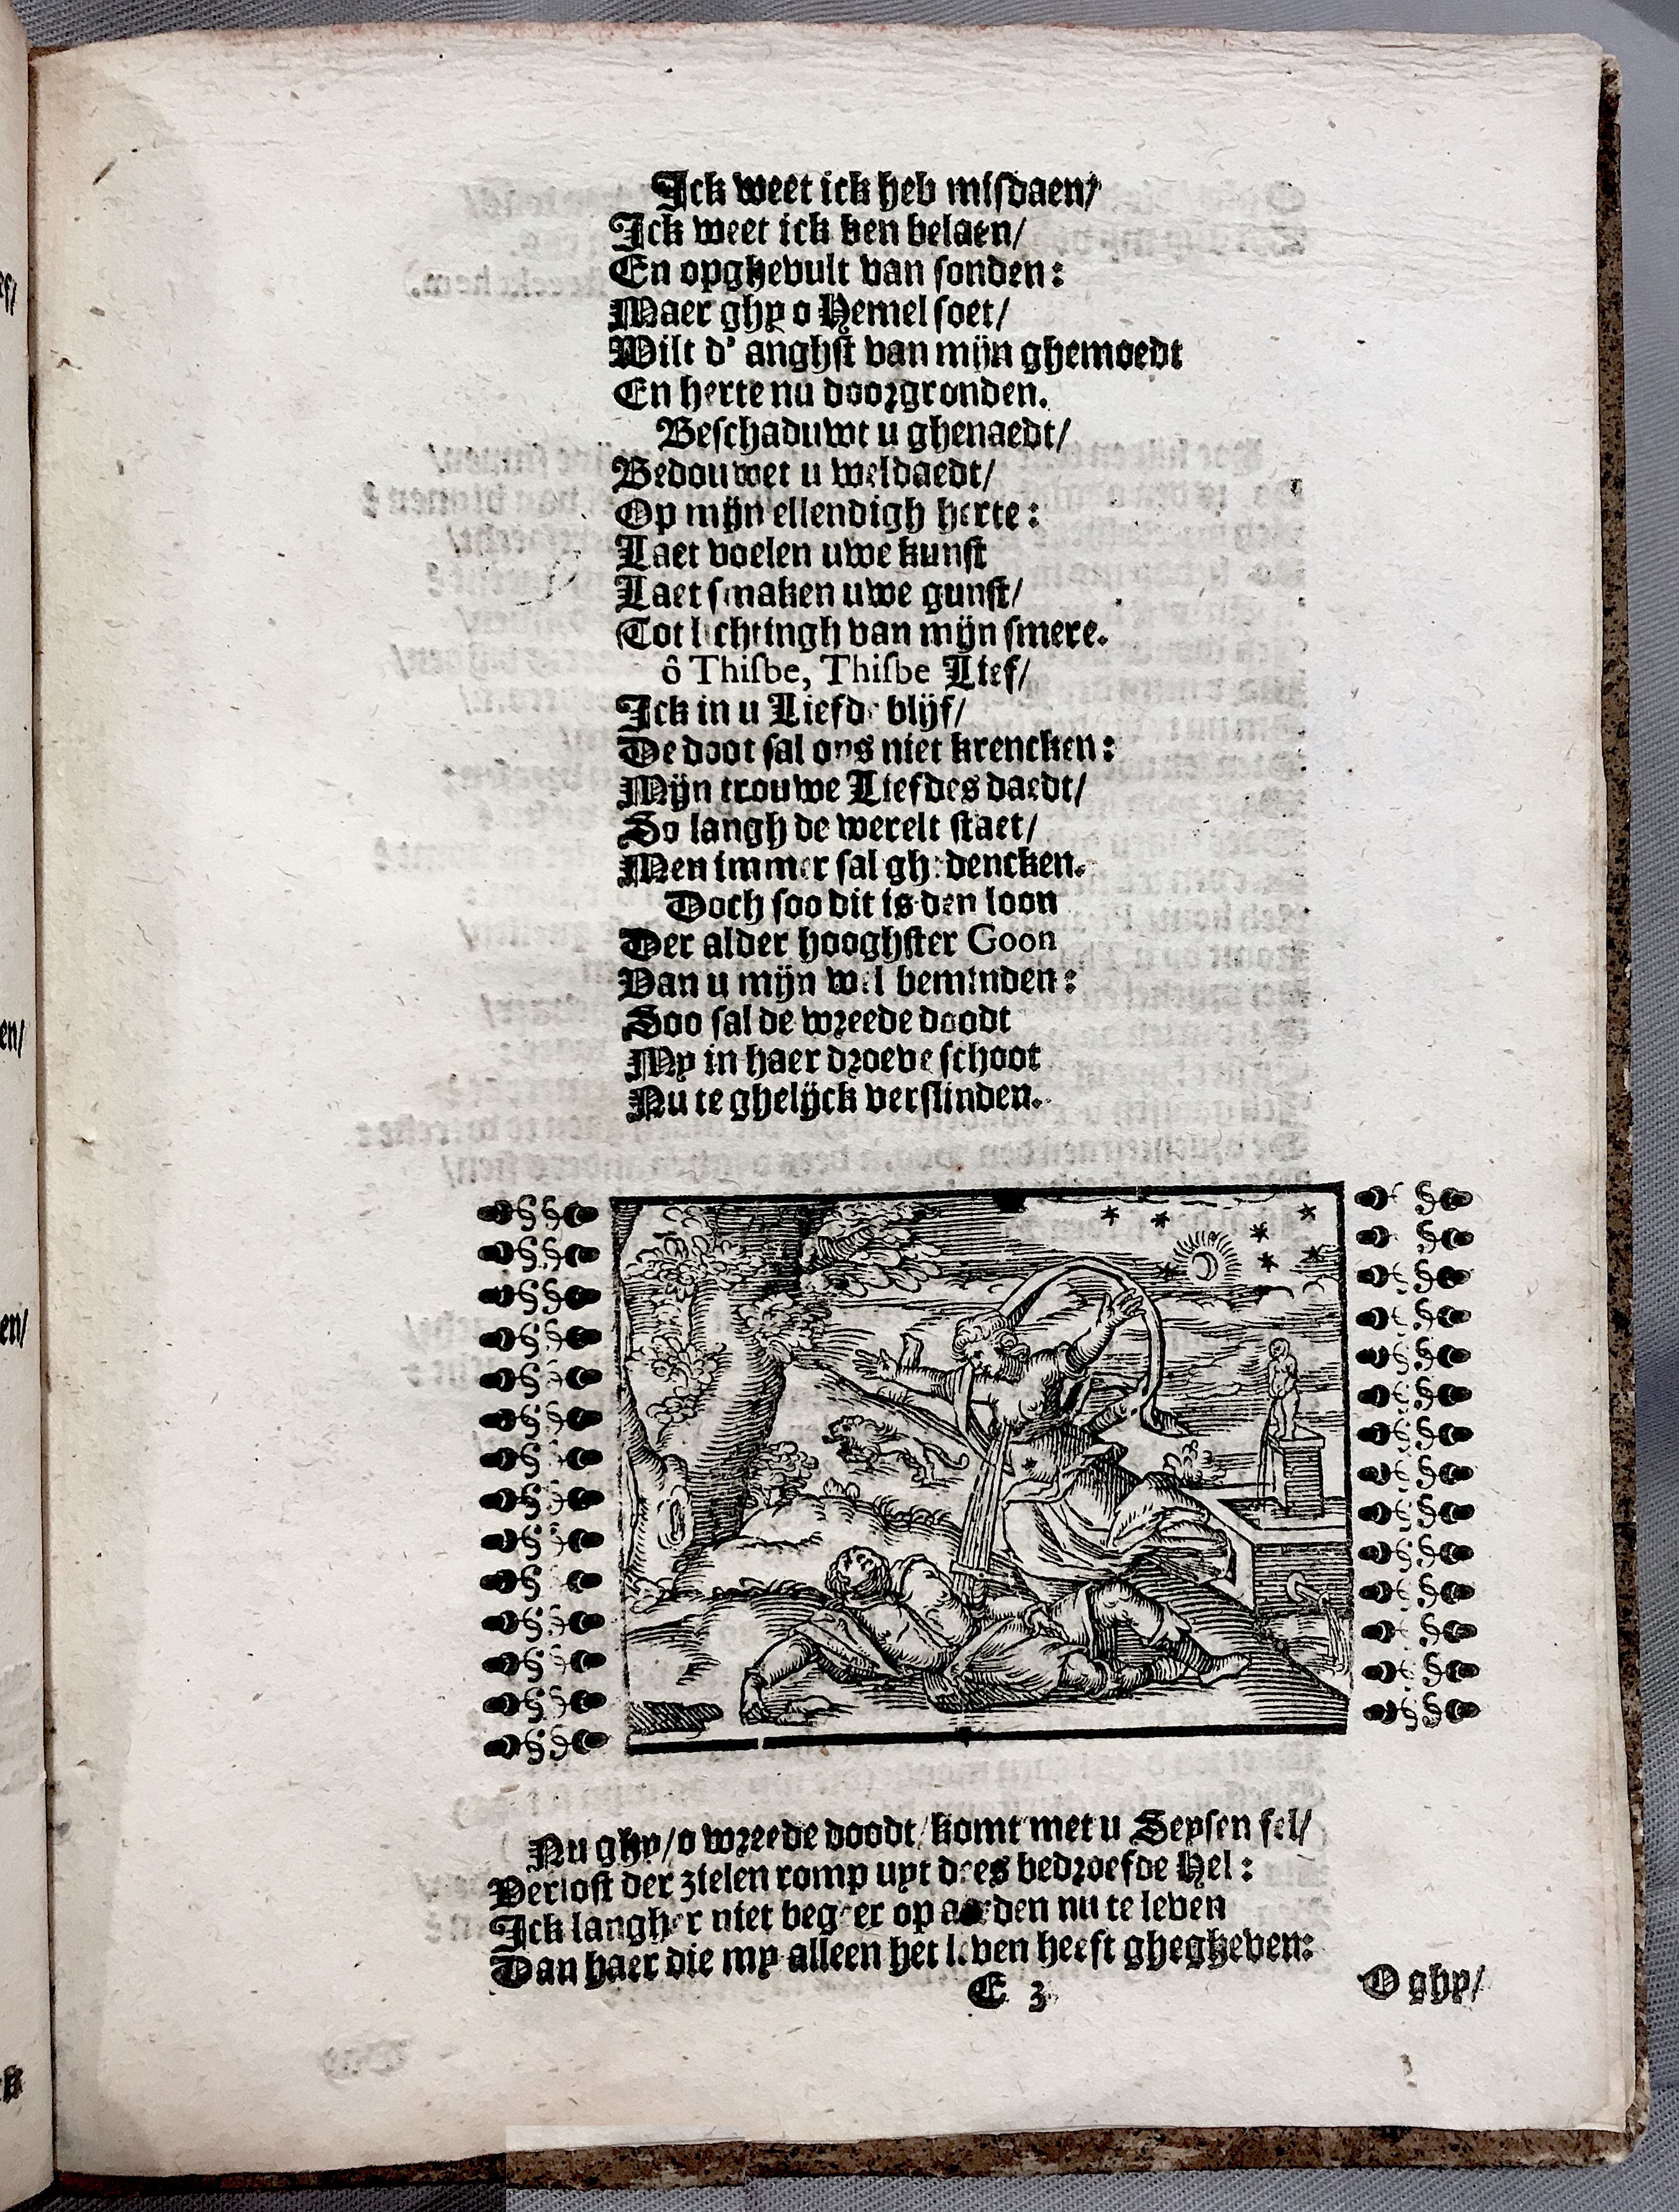 Ick weet ick heb misdaen/
Ick weet ick ben belaen/
En opghevult van sonden:
Maer ghy o Hemel soet/
Wilt d' anghst van mijn ghemoedt
En herte nu doorgronden.
Beschaduwt u ghenaedt/
Bedouwet u weldaedt/
Op mijn ellendigh herte:
Laet voelen uwe kunst
Laet smaken uwe gunst/
Tot lichtingh van mijn smere.
ô Thisbe, Thisbe Lief/
Ick in u Liefde blijf/
De doot sal ons niet krencken:
Mijn trouwe Liefdes daedt/
So langh de werelt staet/
Men immer sal ghedencken.
Doch soo dit is den loon
Der alder hooghster Goon
Van u mijn wel beminden:
Soo sal de wreede doodt
My in haer droeve schoot
Nu te ghelijck verslinden.
Nu ghy/o wreede doodt/komt met u Seysen fel/
Verlost der zielen romp uyt dees bedroefde Hel:
Ick langher niet begeer op aerden nu te leven
Dan haer die my alleen het leven heeft ghegheven:
E 3
O ghy/